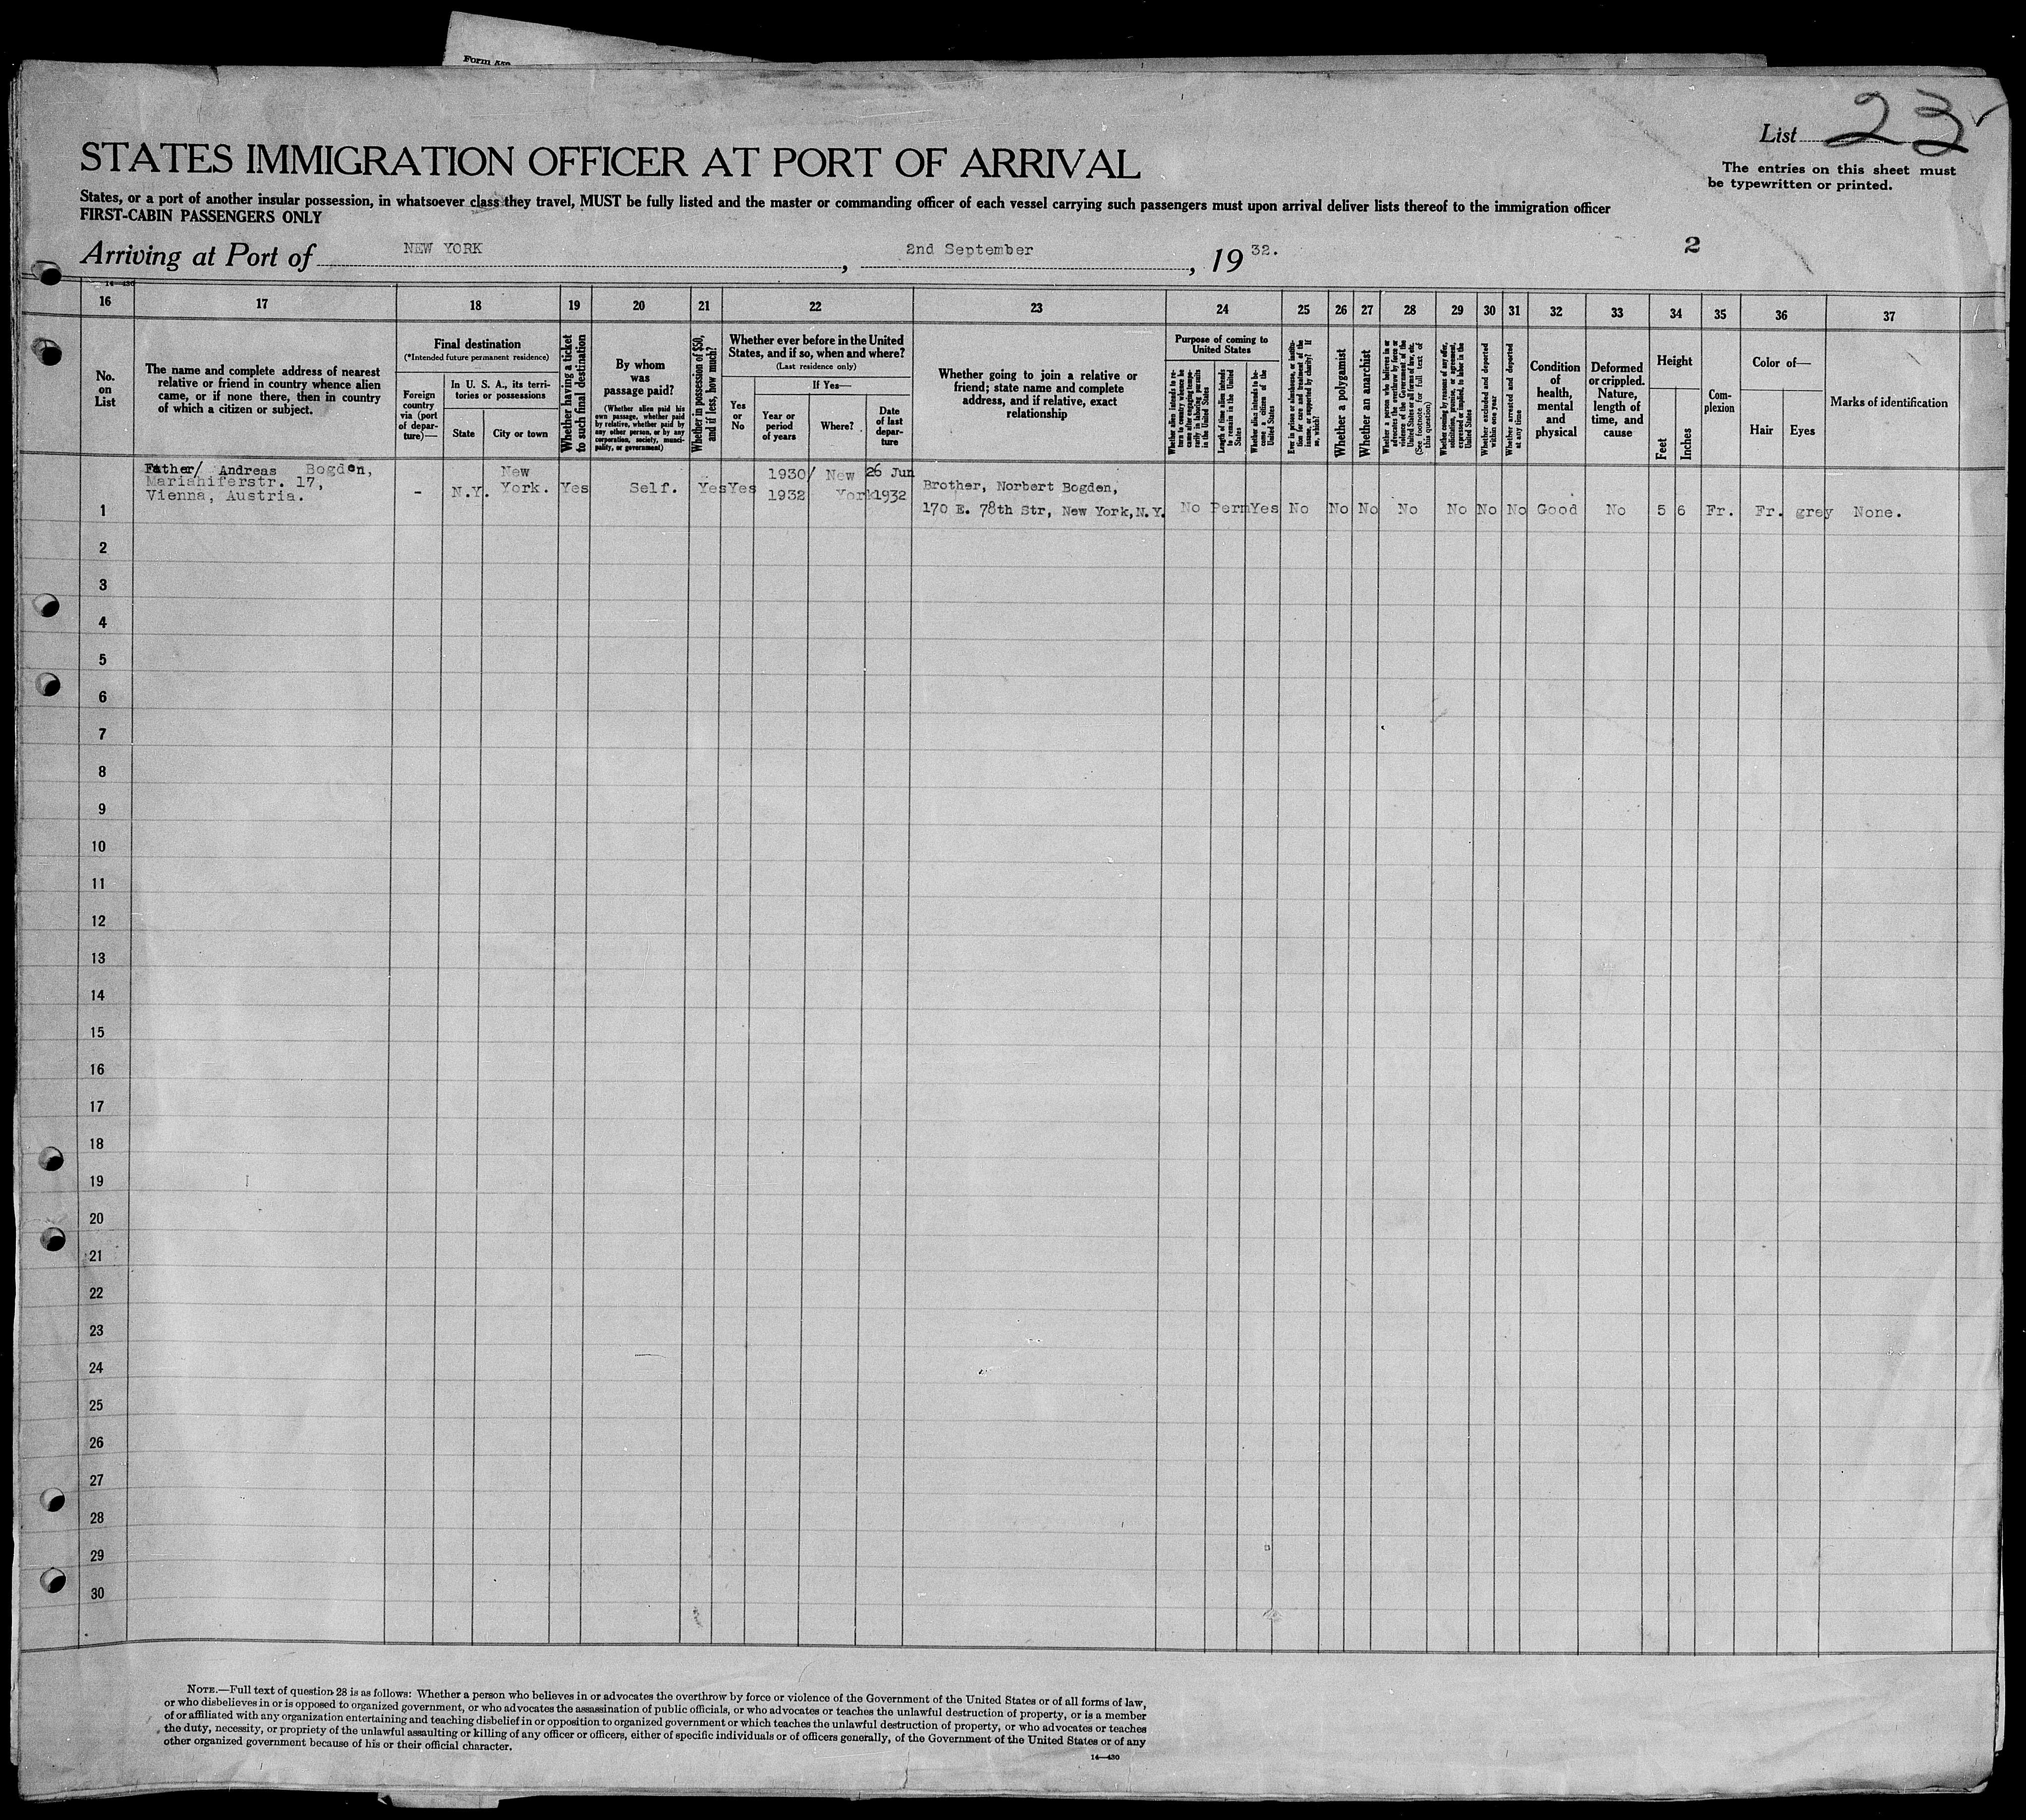 Form 550
List 23
STATES IMMIGRATION OFFICER AT PORT OF ARRIVAL
The entries on this sheet must
be typewritten or printed.
States, or a port of another insular possession, in whatsoever class they travel, MUST be fully listed and the master or commanding officer of each vessel carrying such passengers must upon arrival deliver lists thereof to the immigration officer
FIRST-CABIN PASSENGERS ONLY
Arriving at Port of NEW YORK, 2nd September, 19 32.
2
14—430
16 17 18 19 20 21 22 23 24 25 26 27 28 29 30 31 32 33 34 35 36 37
No.
on
List
The name and complete address of nearest
relative or friend in country whence alien
came, or if none there, then in country
of which a citizen or subject.
Final destination
(*Intended future permanent residence)
Foreign
country
via (port
of depar-
ture)—
In U. S. A., its terri-
tories or possessions
State
City or town
Whether having a ticket
to such final destination
By whom
was
passage paid?
(Whether alien paid his
own passage, whether paid
by relative, whether paid by
any other person, or by any
corporation, society, munici-
pality, or government)
Whether in possession of $50,
and if less, how much?
Whether ever before in the United
States, and if so, when and where?
(Last residence only)
Yes
or
No
If Yes—
Year or
period
of years
Where?
Date
of last
depar-
ture
Whether going to join a relative or
friend; state name and complete
address, and if relative, exact
relationship
Purpose of coming to
United States
Whether alien intends to re-
turn to country whence he
came after engaging tempo-
rarily in laboring pursuits
in the United States
Length of time alien intends
to remain in the United
States
Whether alien intends to be-
come a citizen of the
United States
Ever in prison or almshouse, or institu-
tion for care and treatment of the
insane, or supported by charity? If
so, which?
Whether a polygamist
Whether an anarchist
Whether a person who believes in or
advocates the overthrow by force or
violence of the Government of the
United States or all forms of law, etc.
(See footnote for full text of
this question)
Whether coming by reason of any offer,
solicitation, promise, or agreement,
expressed or implied, to labor in the
United States
Whether excluded and deported
within one year
Whether arrested and deported
at any time
Condition
of
health,
mental
and
physical
Deformed
or crippled.
Nature,
length of
time, and
cause
Height
Feet
Inches
Com-
plexion
Color of—
Hair
Eyes
Marks of identification
Father/ Andreas Bogden,
Mariahiferstr. 17,
Vienna, Austria.
-
N.Y.
New
York.
Yes
Self.
Yes
Yes
1930/
1932
New
York
26 Jun
1932
Brother, Norbert Bogden,
170 E. 78th Str, New York, N.Y.
No Perm Yes No No No No No No No Good No 5 6 Fr. Fr. grey None.
1
2
3
4
5
6
7
8
9
10
11
12
13
14
15
16
17
18
19
20
21
22
23
24
25
26
27
28
29
30
NOTE.—Full text of question 28 is as follows: Whether a person who believes in or advocates the overthrow by force or violence of the Government of the United States or of all forms of law,
or who disbelieves in or is opposed to organized government, or who advocates the assassination of public officials, or who advocates or teaches the unlawful destruction of property, or is a member
of or affiliated with any organization entertaining and teaching disbelief in or opposition to organized government or which teaches the unlawful destruction of property, or who advocates or teaches
the duty, necessity, or propriety of the unlawful assaulting or killing of any officer or officers, either of specific individuals or of officers generally, of the Government of the United States or of any
other organized government because of his or their official character.
14—430